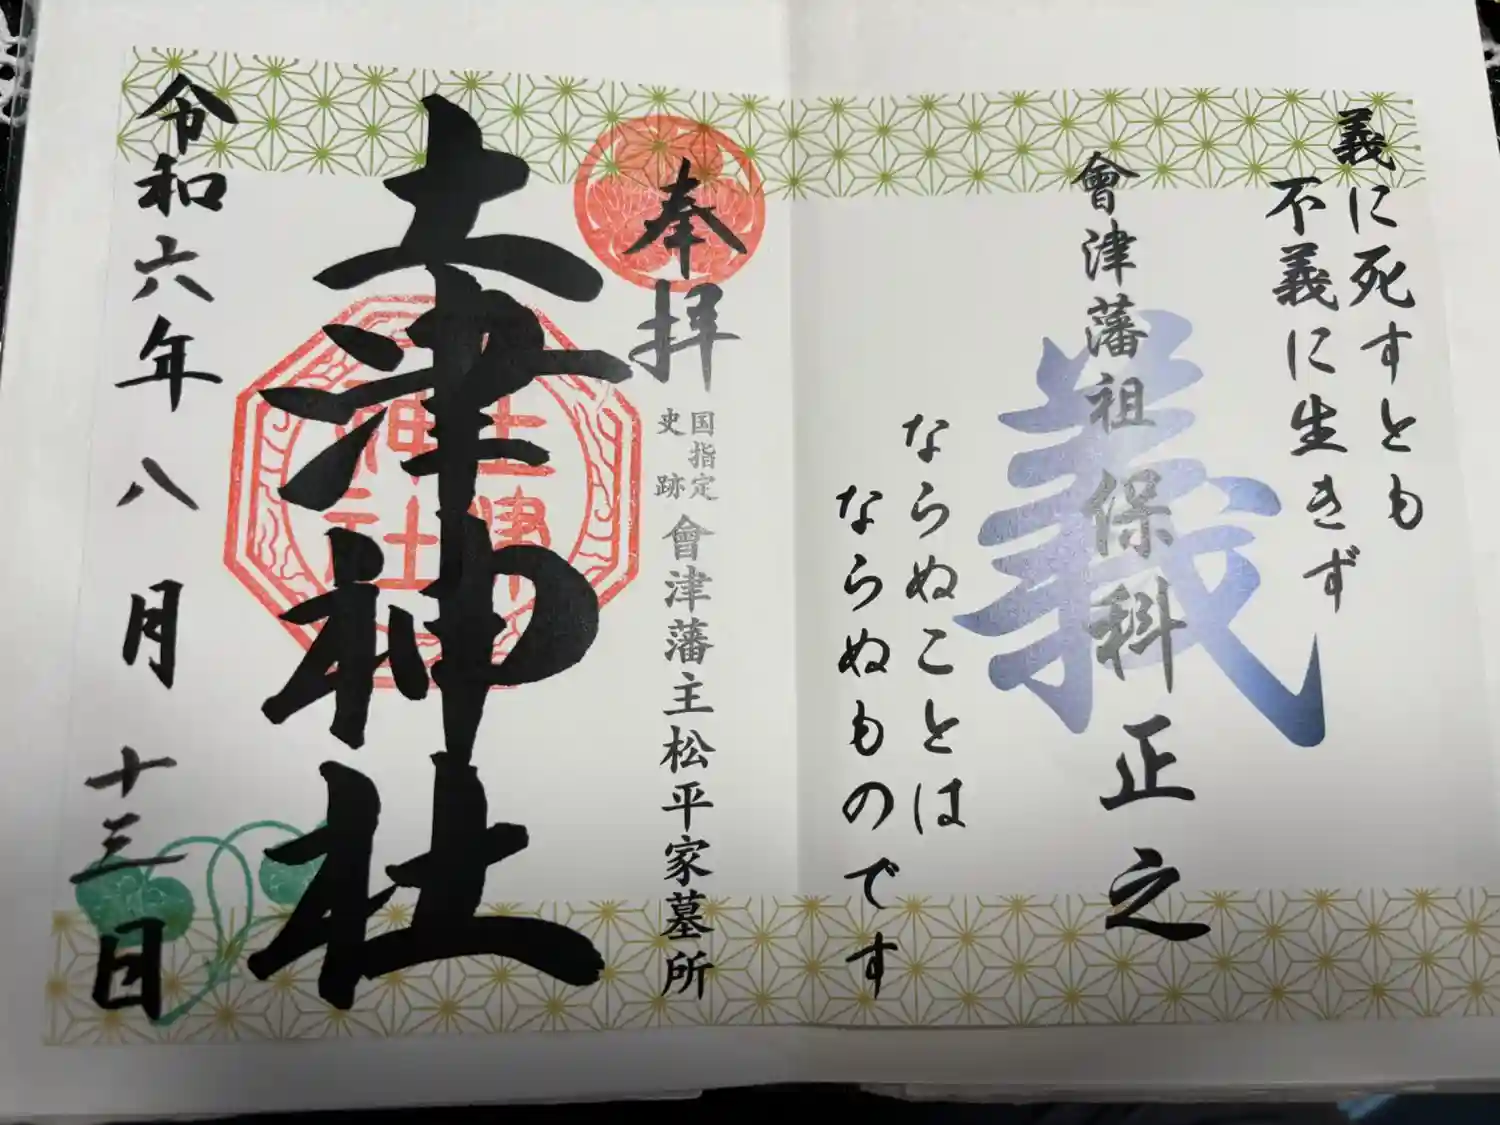 義に死すとも
不義に生きず
義
會津藩祖保科正之
ならぬことは
ならぬものです
奉拝
国指定
史跡
會津藩主松平家墓所
土津神社
土津
神社
令和六年八月十三日